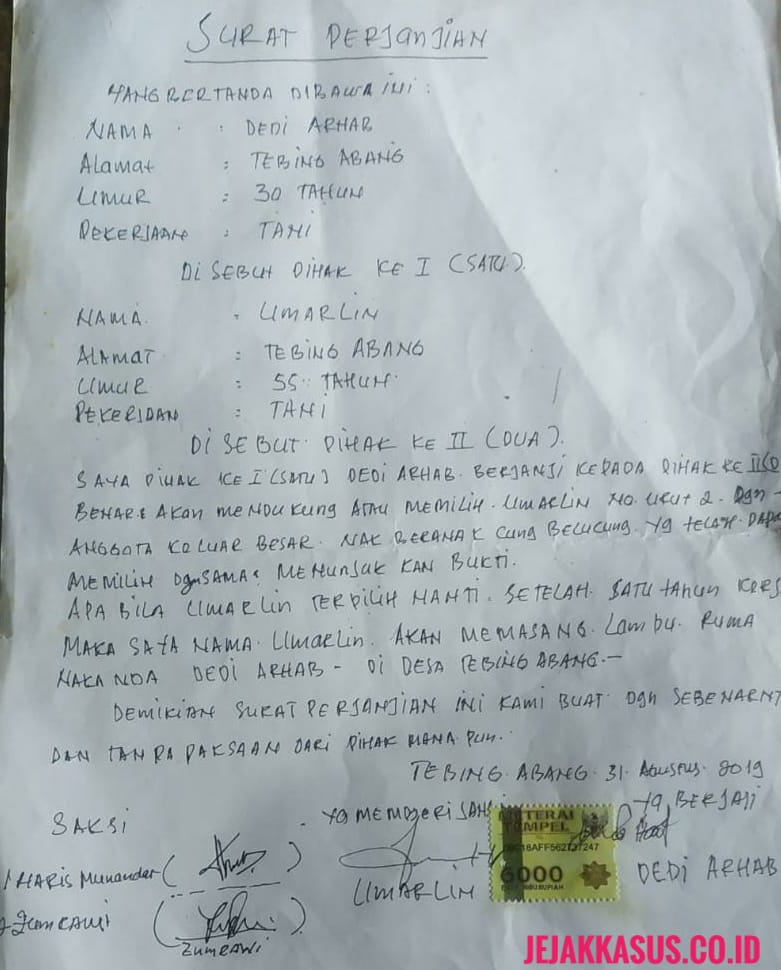 SURAT PERJANJIAN
YANG BERTANDA DIBAWA INI :
NAMA : DEDI ARHAB
Alamat : TEBING ABANG
UMUR : 30 TAHUN
PEKERJAAN : TANI
Di SEBUH PIHAK KE I (SATU).
NAMA : UMARLIN
ALAMAT : TEBING ABANG
UMUR : 55 TAHUN
PEKERJDAN : TANI
Di SEBUT PIHAK KE II (DUA).
SAYA PIHAK KE I (SATU) DEDI ARHAB. BERJANJI KEPADA PIHAK KE II (D
BENAR2 AKAN MENDUKUNG ATAU MEMILIH. UMARLIN NO. URUT 2. Dgn
ANGGOTA KELUAR BESAR. NAK BERANAK CUNG BELUCUNG. Yg TELAH. DAPA
MEMILIH Dgn SAMA2 MENUNJUK KAN BUKTI.
APA BILA UMARLIN TERPILIH NANTI. SETELAH. SATU tAHUN KERJ
MAKA SAYA NAMA. UMARLIN. AKAN MEMASANG. LAMBU. RUMA
NAKANDA DEDI ARHAB - Di DESA TEBING ABANG.-
DEMIKIAN SURAT PERJANJIAN INI KAMI BUAT Dgn SEBENARNY
DAN TANPA PAKSAAN DARI PIHAK MANA PUN.
TEBING. ABANG. 31. Agustus. 2019
SAKSI
Yg BERJAJI
METERAI
TEMPEL
6000
1 HARIS Munandar ( )
UMARLIN
DEDI ARHAB
ZUMRAWI
JEJAKKASUS.CO.ID